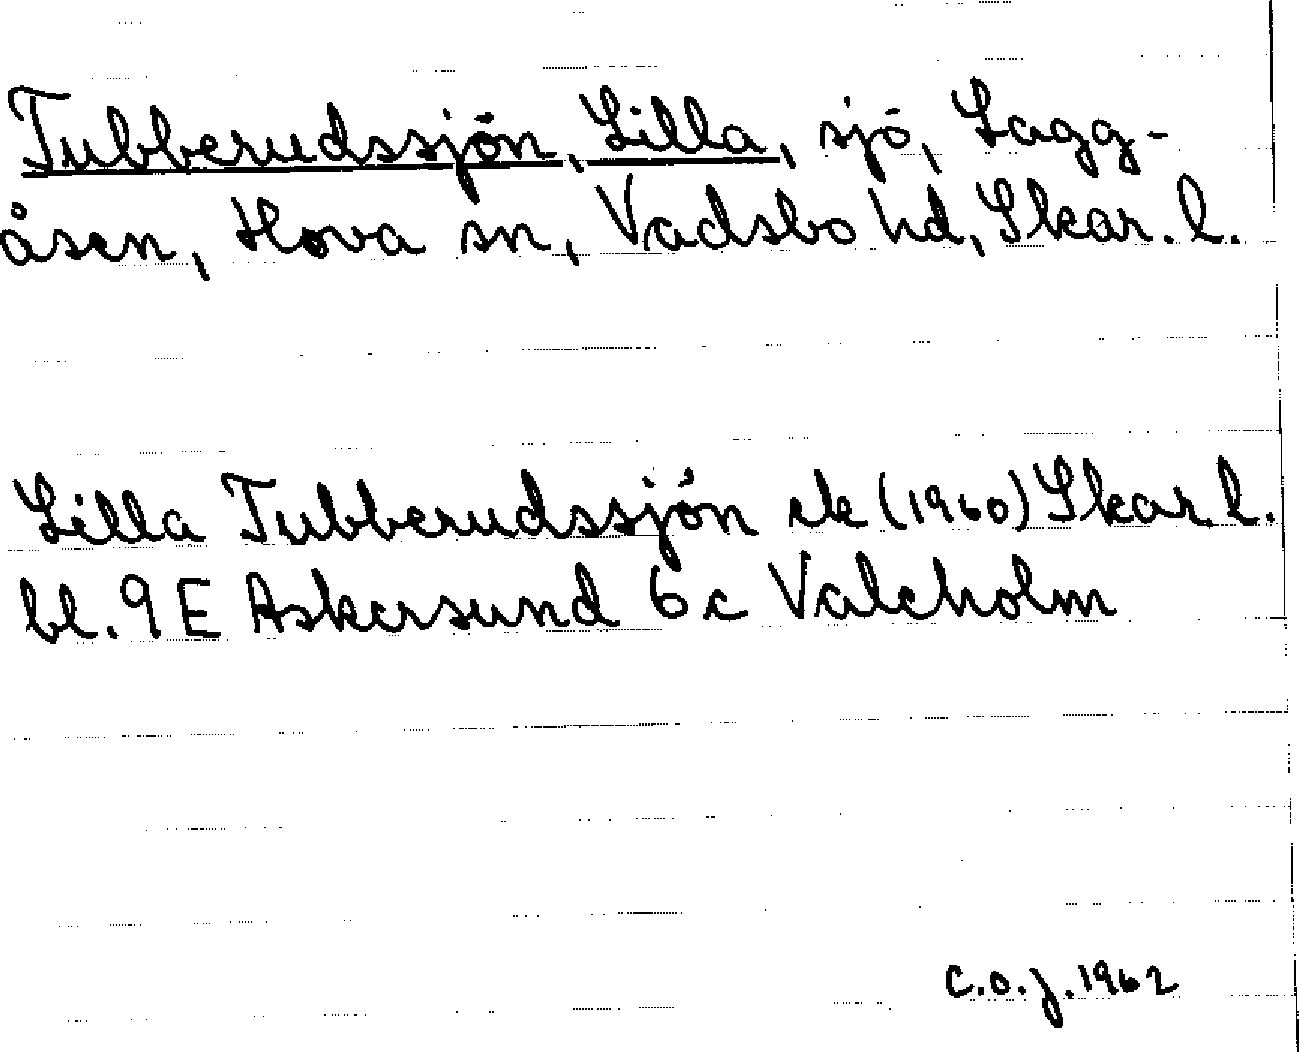 Tubberudssjön, Lilla, sjö, Lagg-
åsen, Hova sn, Vadsbo hd, Skar. l.
Lilla Tubberudssjön ek (1960) Skar. l.
bl. 9 E Askersund 6 c Valeholm
C.O.J. 1962